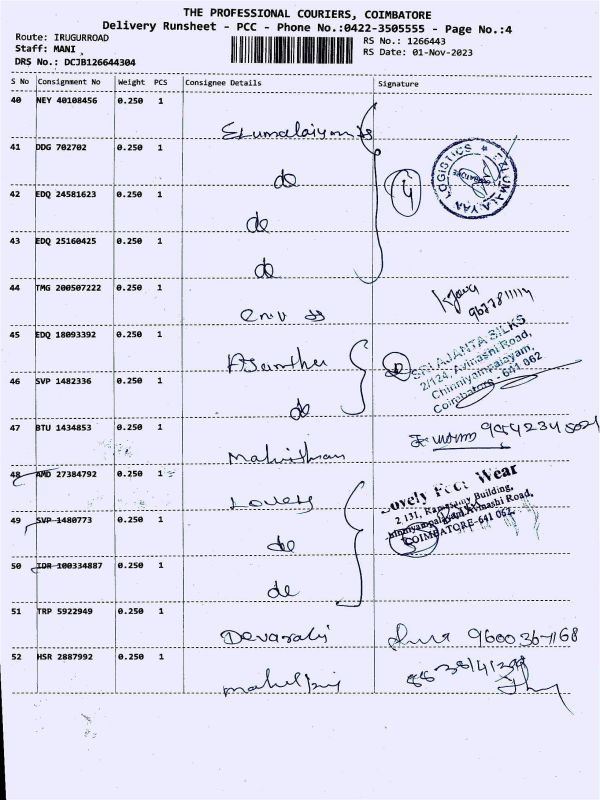 THE PROFESSIONAL COURIERS, COIMBATORE
Delivery Runsheet - PCC - Phone No.:0422-3505555 - Page No.:4
Route: IRUGURROAD
Staff: MANI
DRS No.: DCJB126644304
RS No.: 1266443
RS Date: 01-Nov-2023
S No Consignment No Weight PCS Consignee Details Signature
40 NEY 40108456 0.250 1
41 DDG 702702 0.250 1 do
42 EDQ 24581623 0.250 1 do
43 EDQ 25160425 0.250 1 do
4
LOGISTICS * ELUMALAYAA
COIMBATORE
44 TMG 200507222 0.250 1
45 EDQ 18093392 0.250 1
46 SVP 1482336 0.250 1 do
2
SRI AJANTA SILKS
2/124, Avinashi Road,
Chinniyampalayam,
Coimbatore - 641 062
47 BTU 1434853 0.250 1
48 AMD 27384792 0.250 1
49 SVP 1480773 0.250 1 do
50 IDR 100334887 0.250 1 do
Lovely Foot Wear
2,131, Ramasamy Building,
Chinniyampalayam Avinashi Road,
COIMBATORE-641 062.
51 TRP 5922949 0.250 1 9600367168
52 HSR 2887992 0.250 1